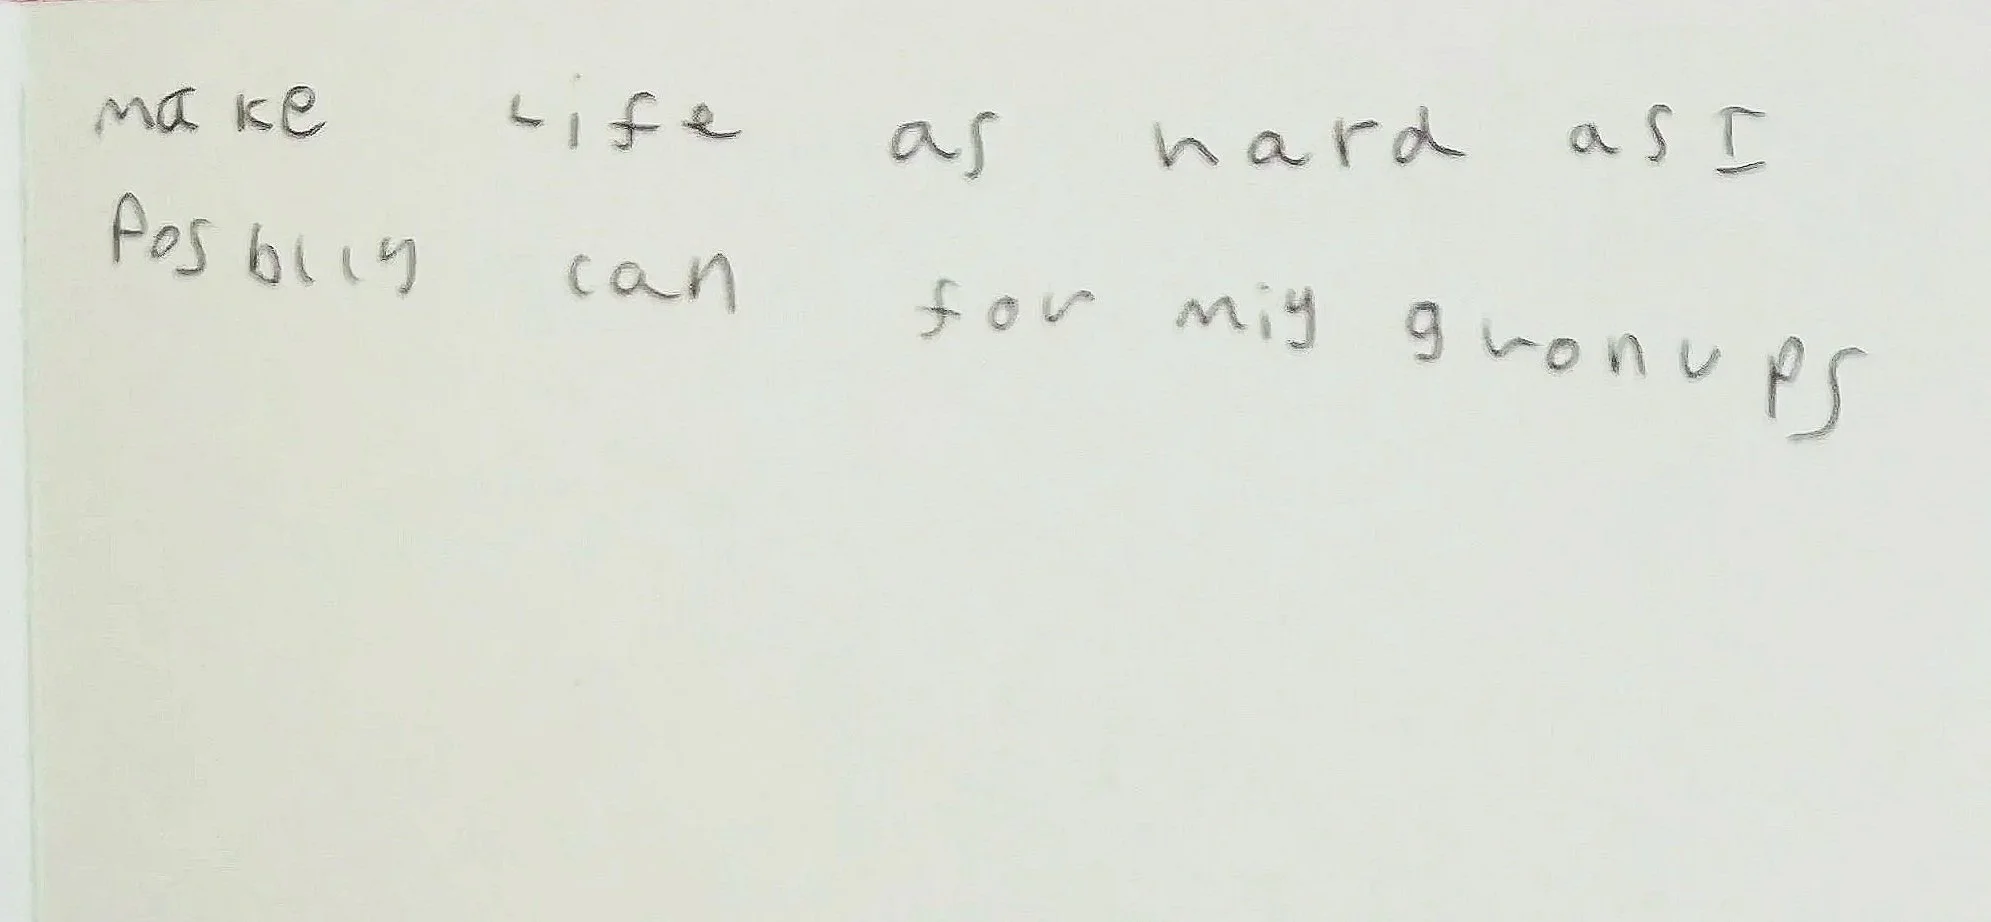 make life as hard as I
Posbily can for miy gronups